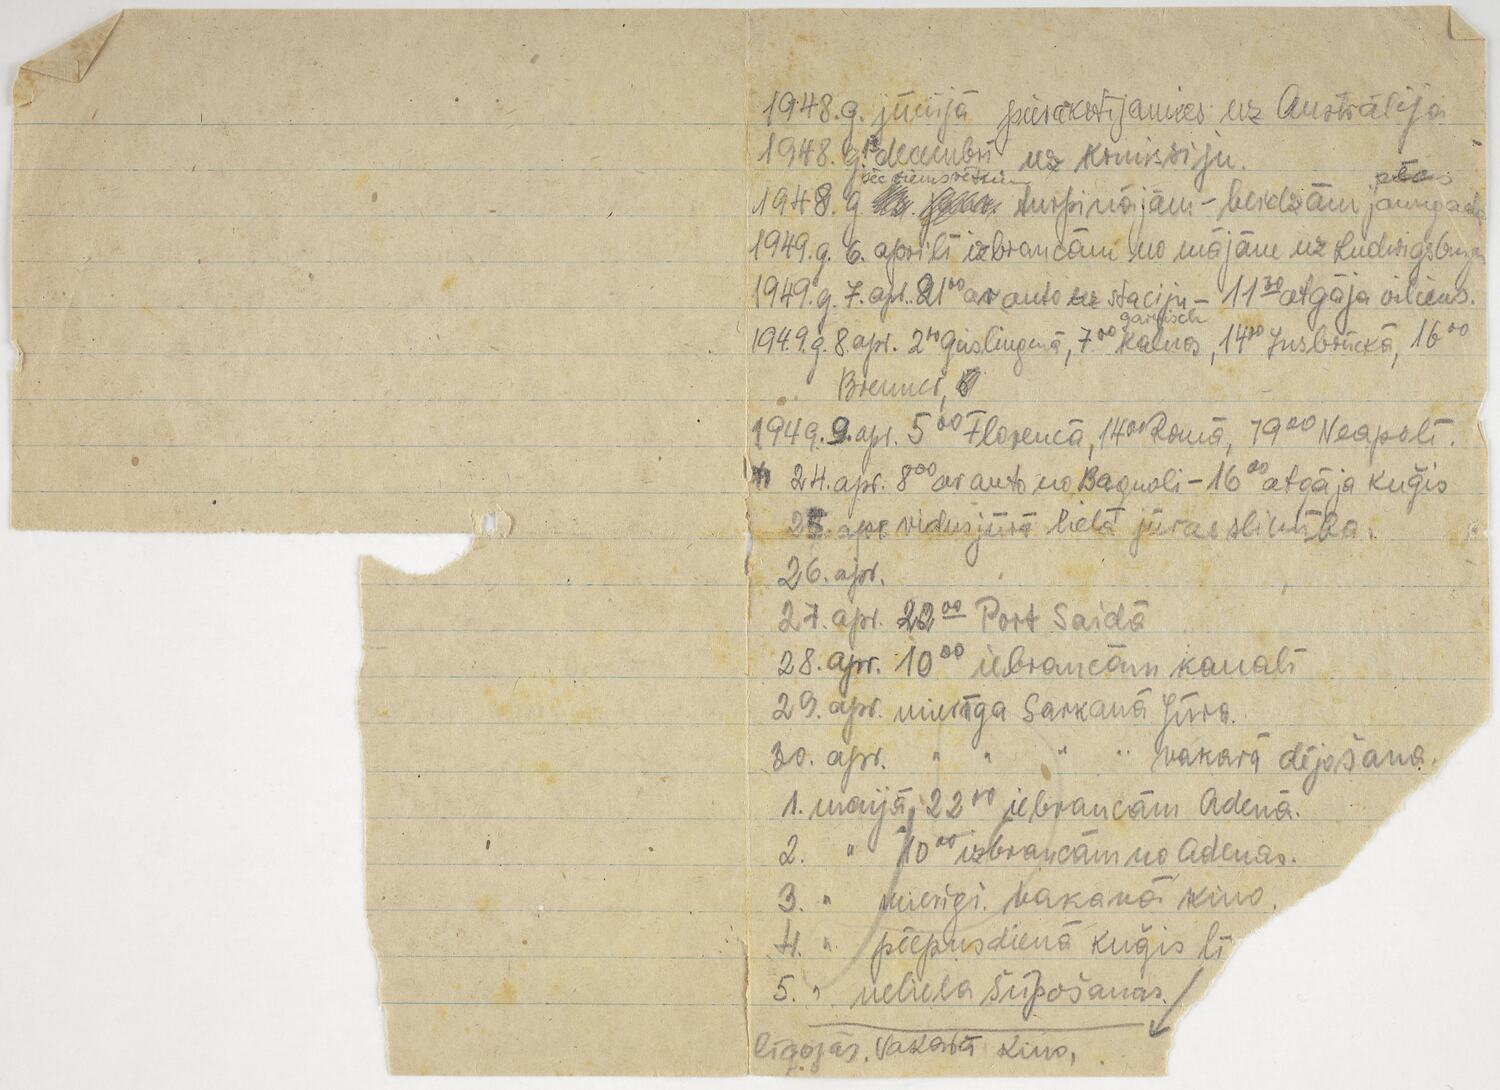 1948.g. jūnijā pierakstījamies uz Austrālija
1948.g. 13 decembrī uz komisiju.
pēc ziemsvētkiem
1948.g turpinājām – beidzām jaungada
1949.g. 6. aprīlī izbraucām no mājām uz Ludwigsburg
1949.g. 7. apr. 21⁰⁰ ar auto uz staciju – 11³⁰ atgāja vilciens.
garmisch
1949.g. 8. apr. 2⁴⁰ Geislingenā, 7⁰⁰ kalnos, 14⁰⁰ Insbrückā, 16⁰⁰
Brennerī,
1949. 9. apr. 5⁰⁰ Florencā, 14⁰⁰ Romā, 19⁰⁰ Neapolī.
24. apr. 8⁰⁰ ar auto no Bagnoli – 16⁰⁰ atgāja kuģis
25. apr vidusjūrā lielā jūras slimība.
26. apr.
27. apr. 22⁰⁰ Port Saidā
28. apr. 10⁰⁰ iebraucām kanalī
29. apr. mierīga Sarkanā Jūra.
30. apr. " " " " vakarā dējošana.
1. maijā 22⁰⁰ iebraucām Adenā.
2. " 10⁰⁰ izbraucām no Adenas.
3. " mierīgi. Vakarā kino.
4. " pēcpusdienā kuģis lī
5. " neliela šūpošanas.
līgojās. Vakarā kino,